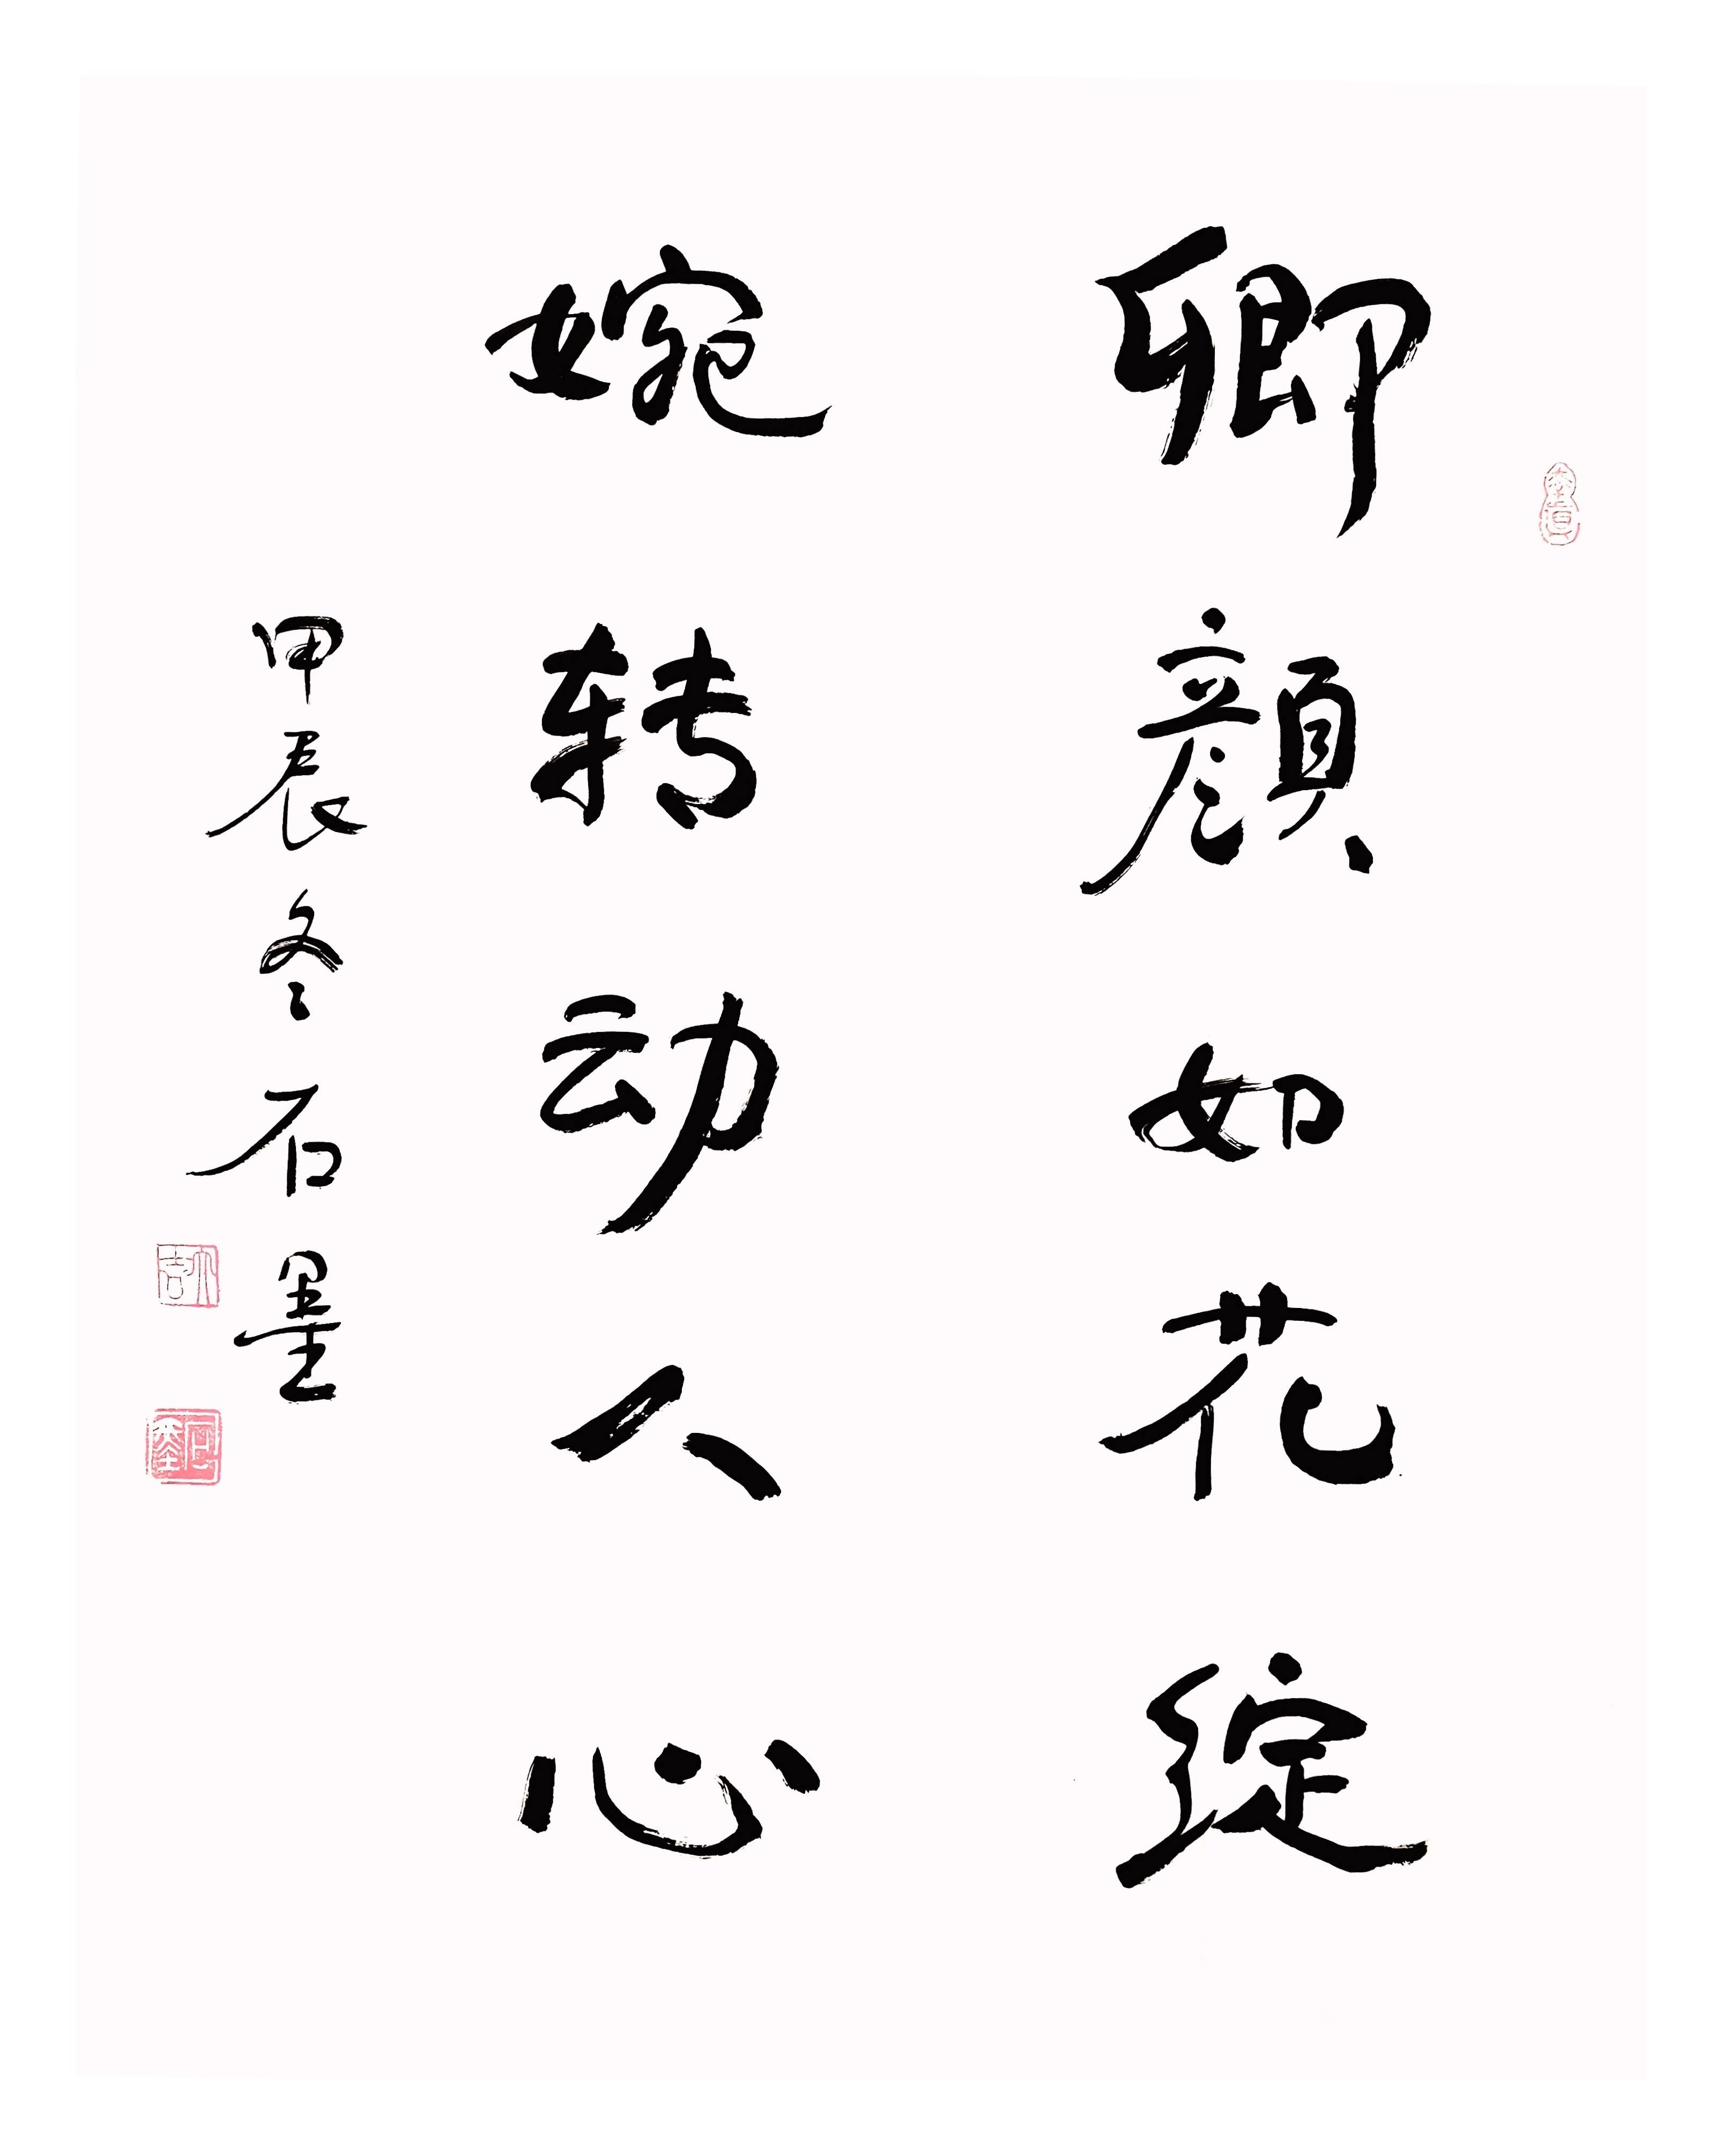 卿颜如花绽
婉转动人心
甲辰冬石墨